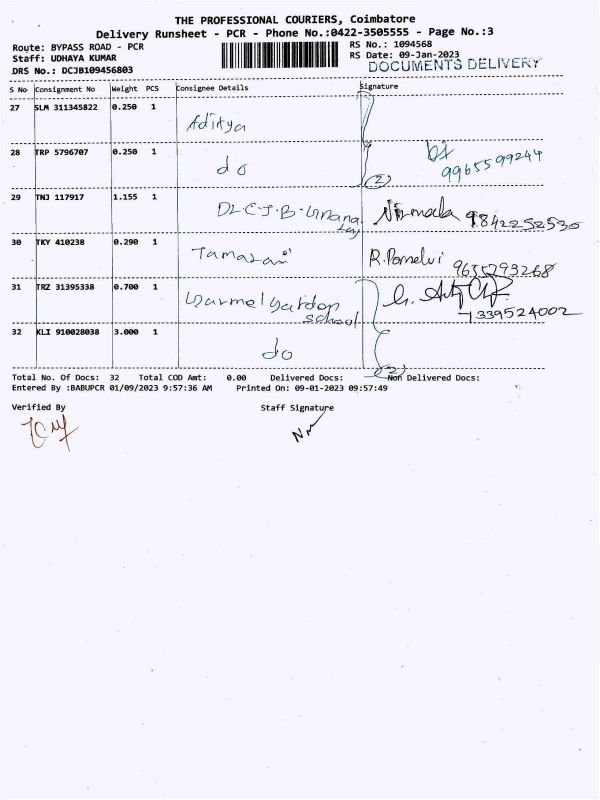 THE PROFESSIONAL COURIERS, Coimbatore
Delivery Runsheet - PCR - Phone No.:0422-3505555 - Page No.:3
Route: BYPASS ROAD - PCR RS No.: 1094568
Staff: UDHAYA KUMAR RS Date: 09-Jan-2023
DRS No.: DCJB109456803 DOCUMENTS DELIVERY
S No Consignment No Weight PCS Consignee Details Signature
27 SLM 311345822 0.250 1 Aditya
28 TRP 5796707 0.250 1 do (2) 9965599244
29 TNJ 117917 1.155 1 Nirmala 9842252530
30 TKY 410238 0.290 1 R. Ponselvi 9655293268
31 TRZ 31395338 0.700 1 Garden School 7339524002
32 KLI 910028038 3.000 1 do (2)
Total No. Of Docs: 32 Total COD Amt: 0.00 Delivered Docs: Non Delivered Docs:
Entered By :BABUPCR 01/09/2023 9:57:36 AM Printed On: 09-01-2023 09:57:49
Verified By Staff Signature